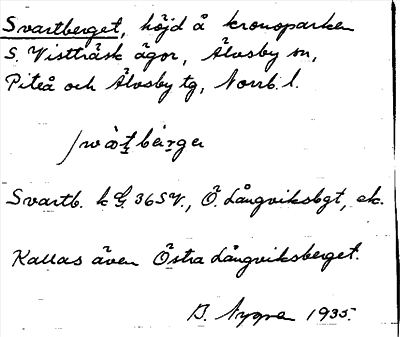 Svartberget, höjd å kronoparken
S. Vistträsk ägor, Älvsby sn,
Piteå och Älvsby tg, Norrb. l.
Svartb. k G. 36 SV., Ö. Långviksbgt, ek.
Kallas även Östra Långviksberget.
B. Nygra 1935.